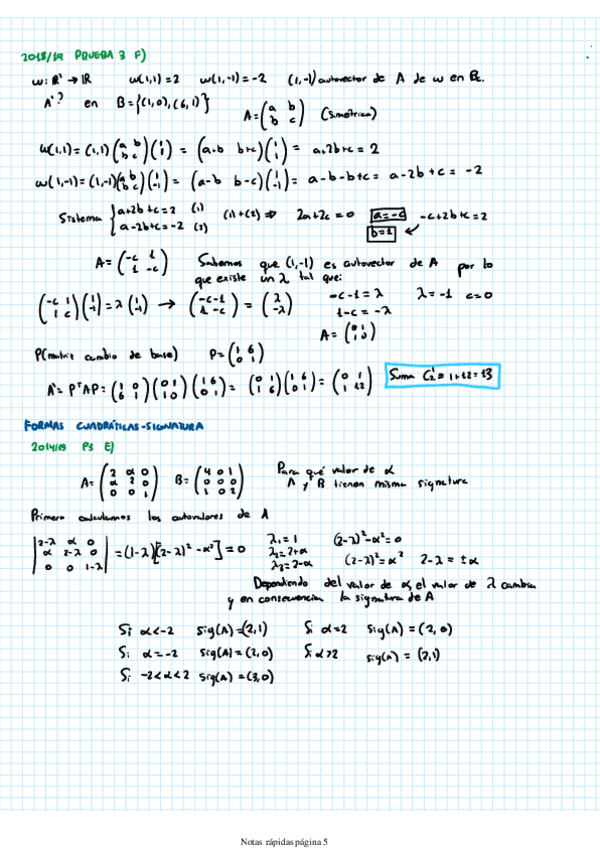 2018/19 PRUEBA 3 F)
ω: ℝ² → ℝ   ω(1,1) = 2   ω(1,-1) = -2   (1,-1) autovector de A de ω en Bc.
A'? en B = {(1,0), (6,1)}   A = (a b; b c) (Simétrica)
ω(1,1) = (1,1)(a b; b c)(1; 1) = (a+b b+c)(1; 1) = a+2b+c = 2
ω(1,-1) = (1,-1)(a b; b c)(1; -1) = (a-b b-c)(1; -1) = a-b-b+c = a-2b+c = -2
Sistema { a+2b+c = 2 (1)   (1)+(2) ⇒ 2a+2c = 0   a = -c   -c+2b+c = 2
a-2b+c = -2 (2)   b = 1
A = (-c 1; 1 -c)   Sabemos que (1,-1) es autovector de A por lo
que existe un λ tal que:
(-c 1; 1 c)(1; -1) = λ(1; -1) → (-c-1; 1-c) = (λ; -λ)   -c-1 = λ   λ = -1   c = 0
1-c = -λ
A = (0 1; 1 0)
P(matriz cambio de base)   P = (1 6; 0 1)
A' = PᵗAP = (1 0; 6 1)(0 1; 1 0)(1 6; 0 1) = (0 1; 1 6)(1 6; 0 1) = (0 1; 1 12)   Suma = 1+12 = 13
FORMAS CUADRÁTICAS-SIGNATURA
P3 E)
A = (2 α 0; α 2 0; 0 0 1)   B = (4 0 1; 0 0 0; 1 0 2)   Para qué valor de α
A y B tienen misma signatura
Primero calculamos los autovalores de A
|2-λ α 0; α 2-λ 0; 0 0 1-λ| = (1-λ)[(2-λ)² - α²] = 0   λ₁ = 1   (2-λ)² - α² = 0
λ₂ = 2+α   (2-λ)² = α²   2-λ = ±α
λ₃ = 2-α
Dependiendo del valor de α, el valor de λ cambia
y en consecuencia la signatura de A
Si α<-2   sig(A) = (2,1)   Si α=2   sig(A) = (2,0)
Si α=-2   sig(A) = (2,0)   Si α>2   sig(A) = (2,1)
Si -2<α<2   sig(A) = (3,0)
Notas rápidas página 5